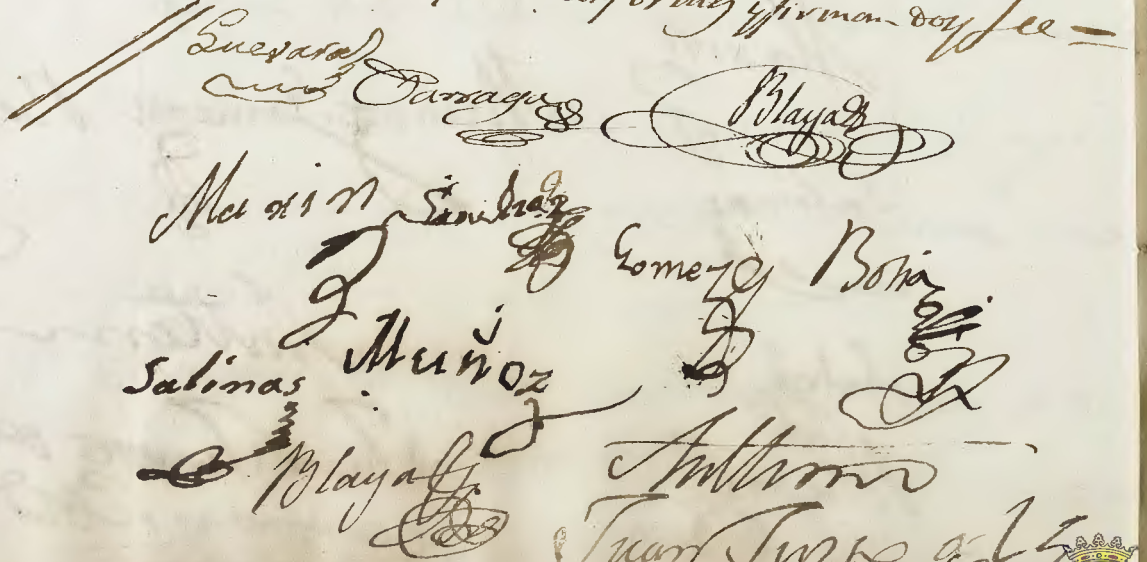 y firman doy fee =
Guevara Parraga Blaya
Marin Sanchez Gomez Boria
Salinas Muñoz
Blaya
Juan